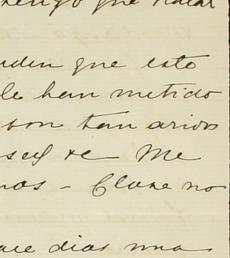 tengo que tratar
uden que esto
le han metido
son tan avidos
sed te Me
nos - Clare no
ace dias una